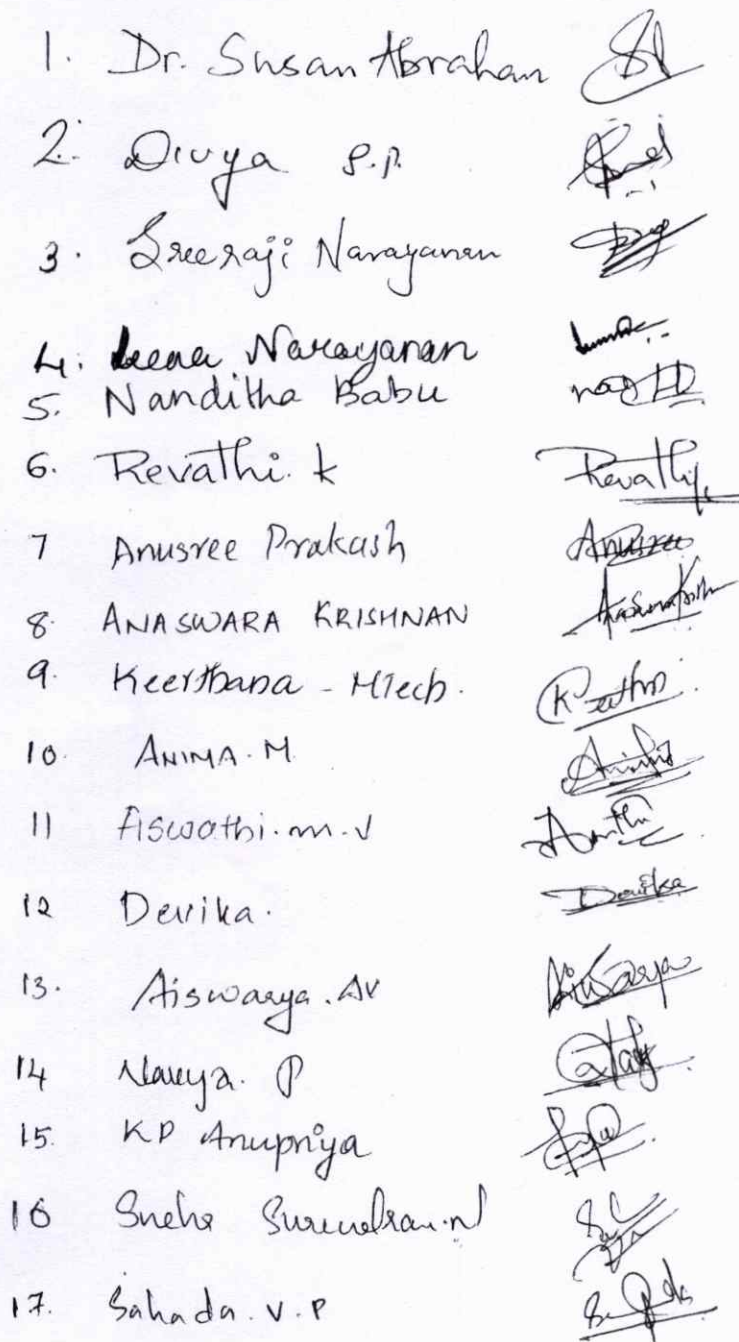 1. Dr. Susan Abraham
2. Divya S.P.
3. Sreeraji Narayanan
4. Leena Narayanan
5. Nanditha Babu
6. Revathi. K Revathy
7 Anusree Prakash Anusree
8. ANASWARA KRISHNAN
9. Keerthana - MTech.
10. ANIMA. M
11 Aiswathi. m. v
12 Devika. Devika
13. Aiswarya. AV Aiswarya
14 Navya. P
15. KP Anupriya
16 Sneha Surendran. N
17. Sahada. V. P